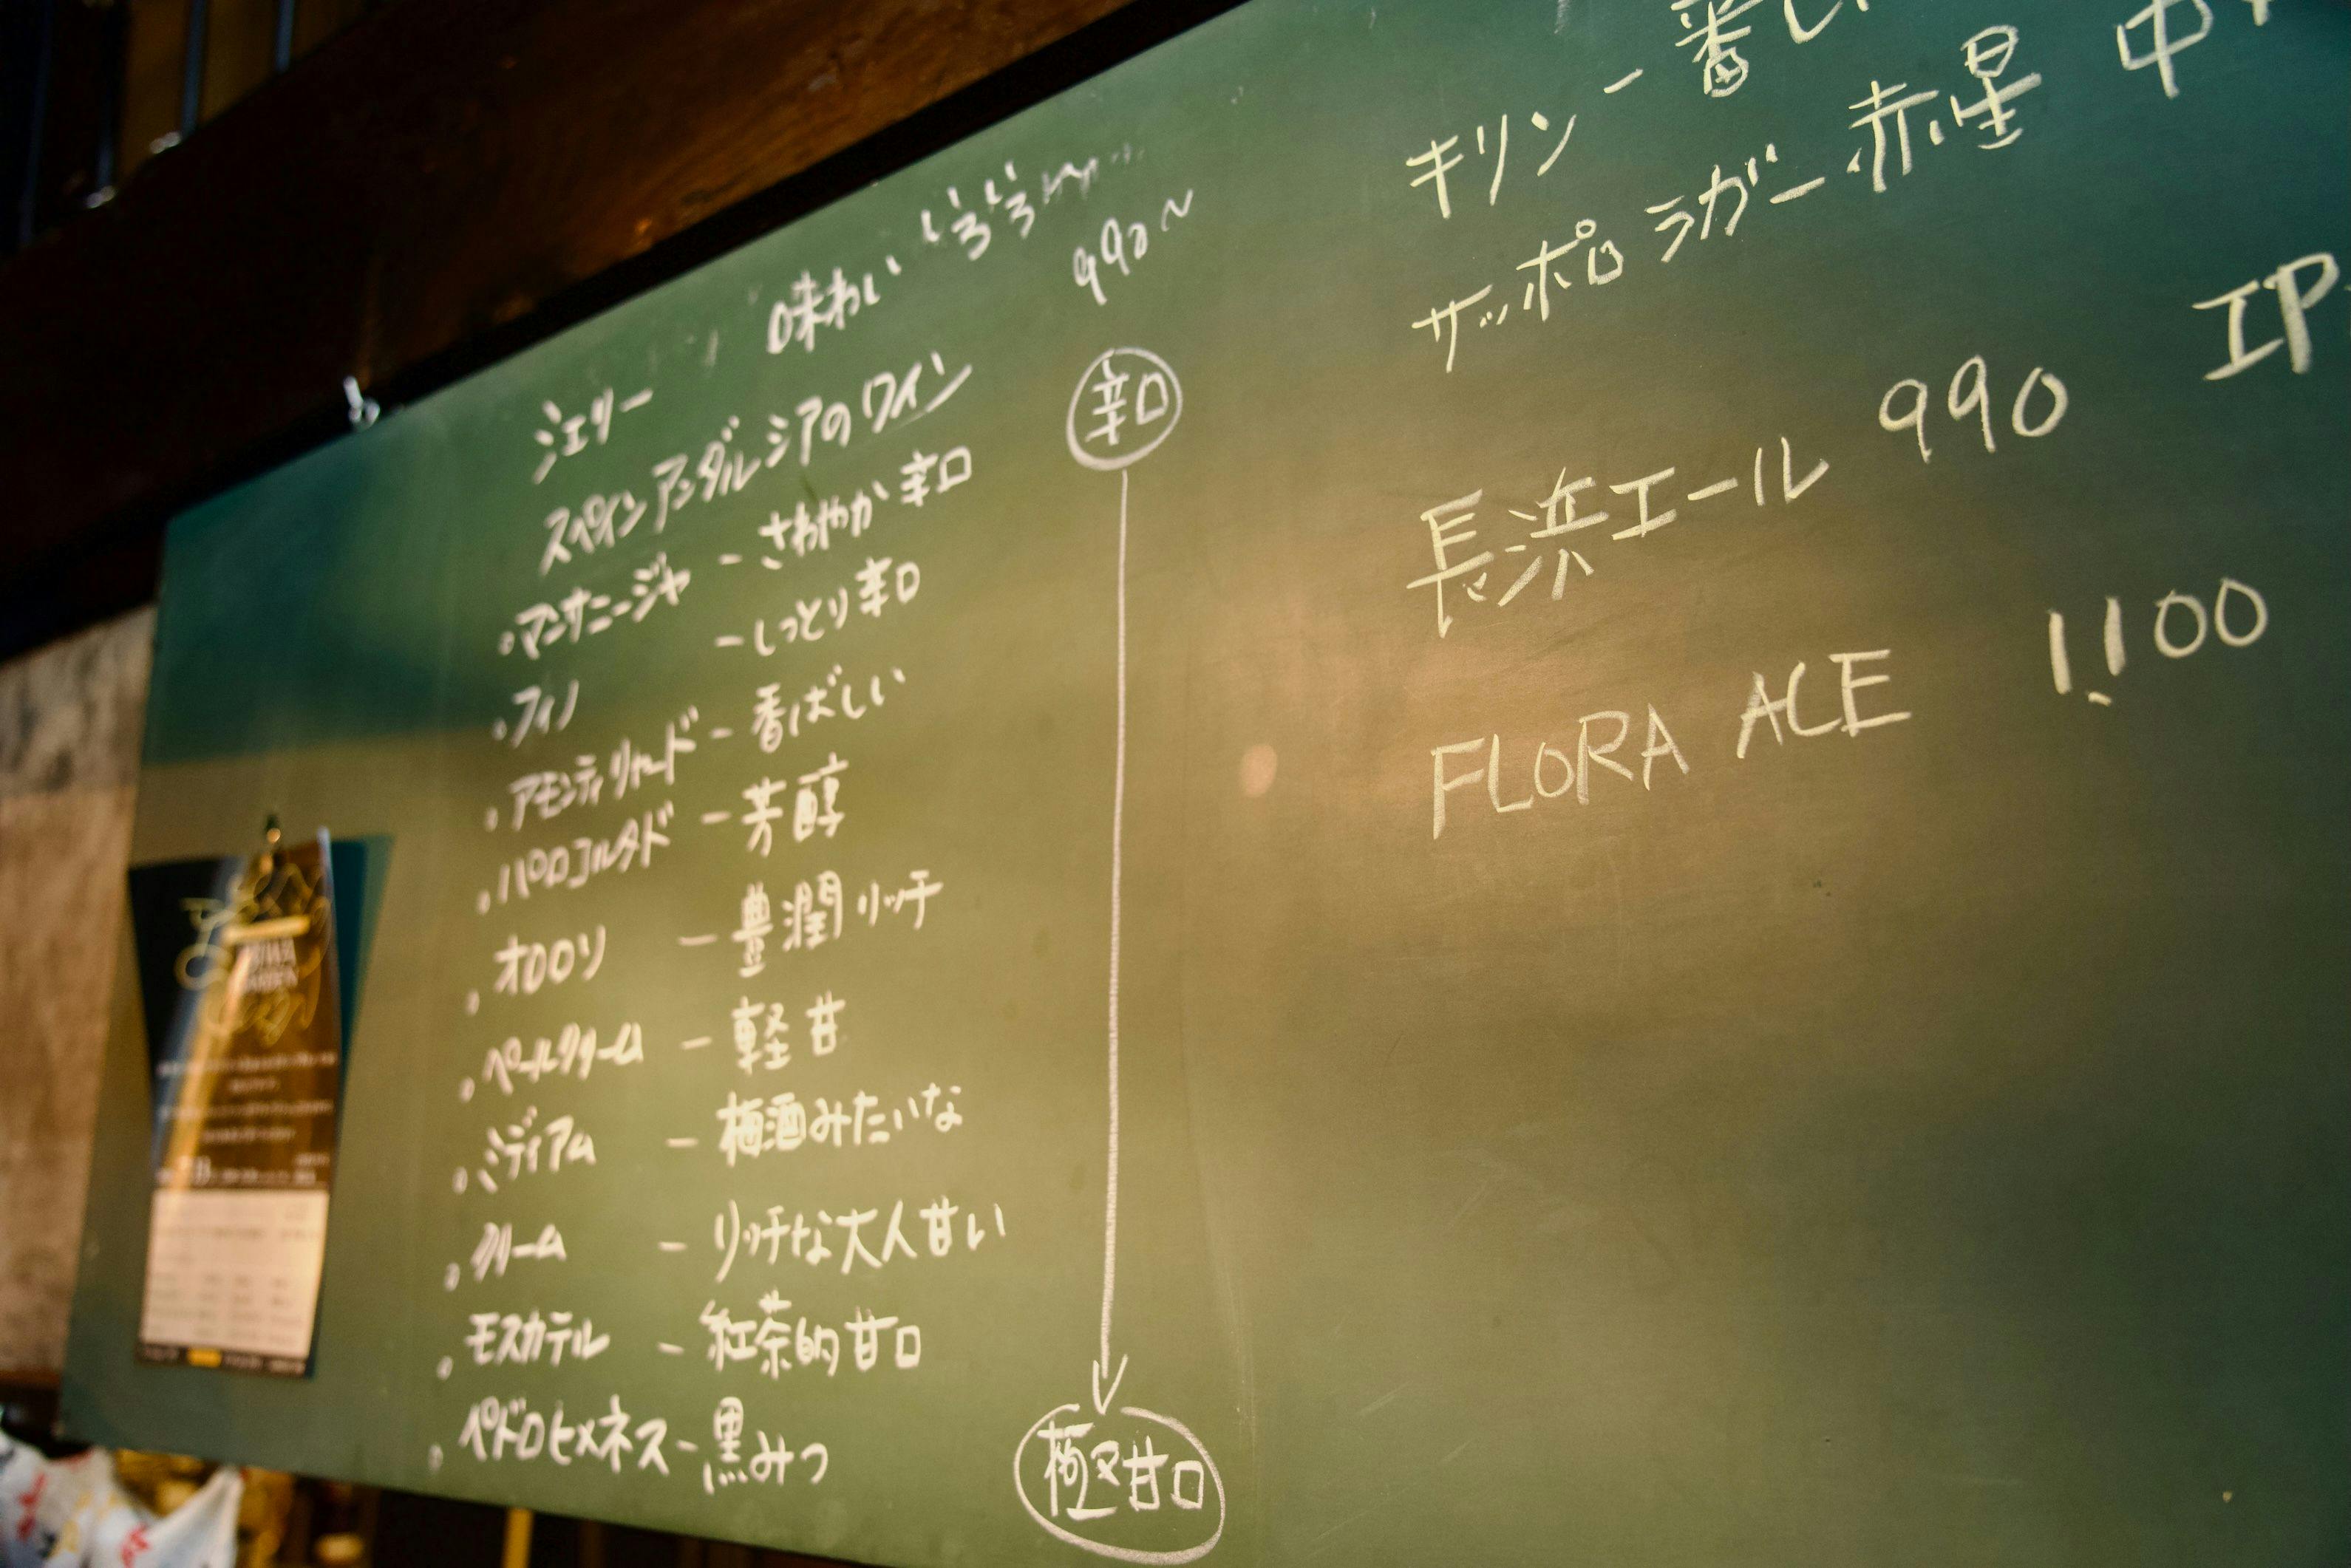 シェリー 味わい いろいろ
スペイン アンダルシアのワイン 990～
・マンサニージャ － さわやか 辛口
・フィノ － しっとり 辛口
・アモンティリャード － 香ばしい
・パロコルタド － 芳醇
・オロロソ － 豊潤 リッチ
・ペールクリーム － 軽甘
・ミディアム － 梅酒みたいな
・クリーム － リッチな大人甘い
・モスカテル － 紅茶的甘口
・ペドロヒメネス － 黒みつ
辛口
極甘口
キリン 一番し
サッポロ ラガー 赤星 中
長浜エール 990 IP
FLORA ACE 1,100